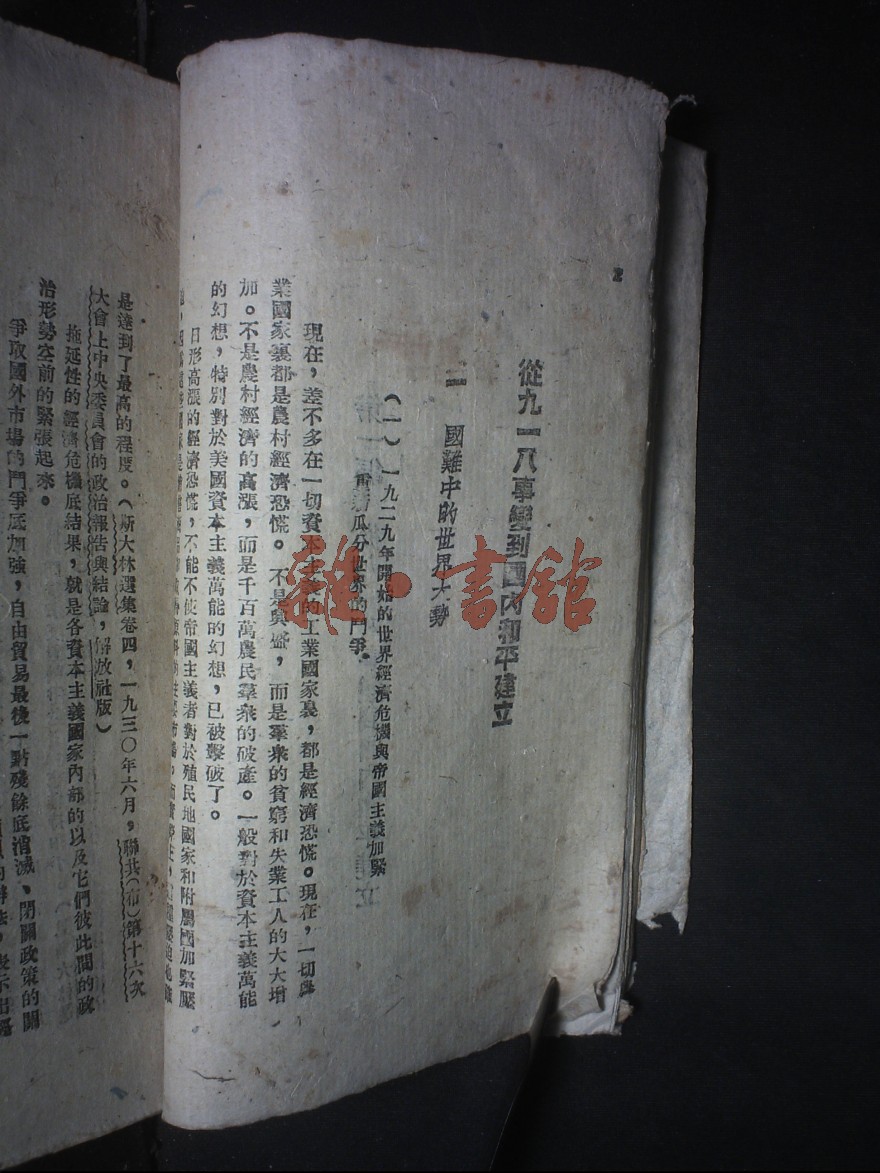 2
從九一八事變到國內和平建立
一 國難中的世界大勢
(一)一九二九年開始的世界經濟危機與帝國主義加緊
瓜分世界的鬥爭。
現在,差不多在一切資本主義的工業國家裏,都是經濟恐慌。現在,一切農
業國家裏都是農村經濟恐慌。不是興盛,而是羣衆的貧窮和失業工人的大大增
加。不是農村經濟的高漲,而是千百萬農民羣衆的破產。一般對於資本主義萬能
的幻想,特別對於美國資本主義萬能的幻想,已被擊破了。
日形高漲的經濟恐慌,不能不使帝國主義者對於殖民地國家和附屬國加緊壓
是達到了最高的程度。(斯大林選集卷四,一九三〇年六月,聯共(布)第十六次
大會上中央委員會的政治報告與結論,解放社版)
拖延性的經濟危機底結果,就是各資本主義國家內部的以及它們彼此間的政
治形勢空前的緊張起來。
爭取國外市場的鬥爭底加強,自由貿易最後一點殘餘底消滅、閉關政策的關
雜·書館